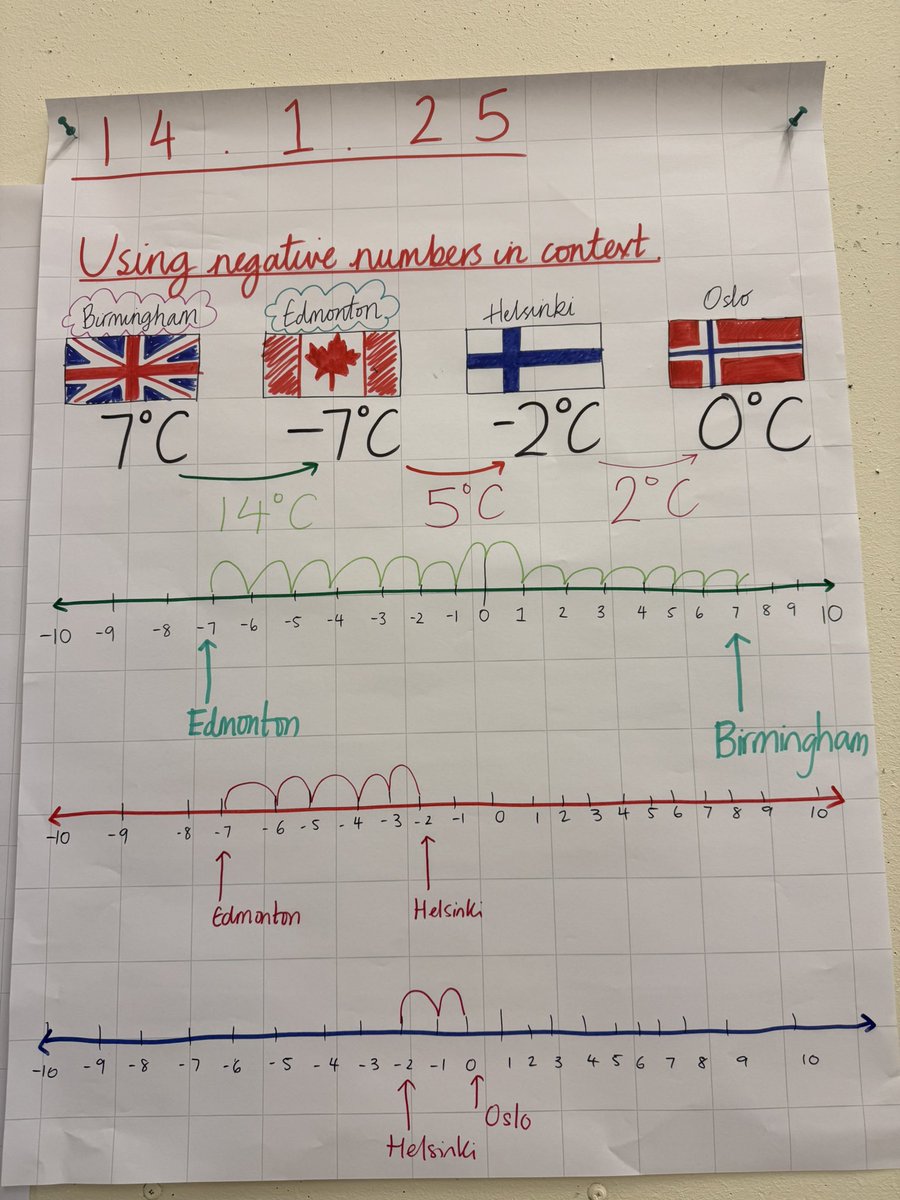 14.1.25
Using negative numbers in context.
Birmingham Edmonton Helsinki Oslo
7°C -7°C -2°C 0°C
14°C 5°C 2°C
-10 -9 -8 -7 -6 -5 -4 -3 -2 -1 0 1 2 3 4 5 6 7 8 9 10
Edmonton Birmingham
-10 -9 -8 -7 -6 -5 -4 -3 -2 -1 0 1 2 3 4 5 6 7 8 9 10
Edmonton Helsinki
-10 -9 -8 -7 -6 -5 -4 -3 -2 -1 0 1 2 3 4 5 6 7 8 9 10
Helsinki Oslo